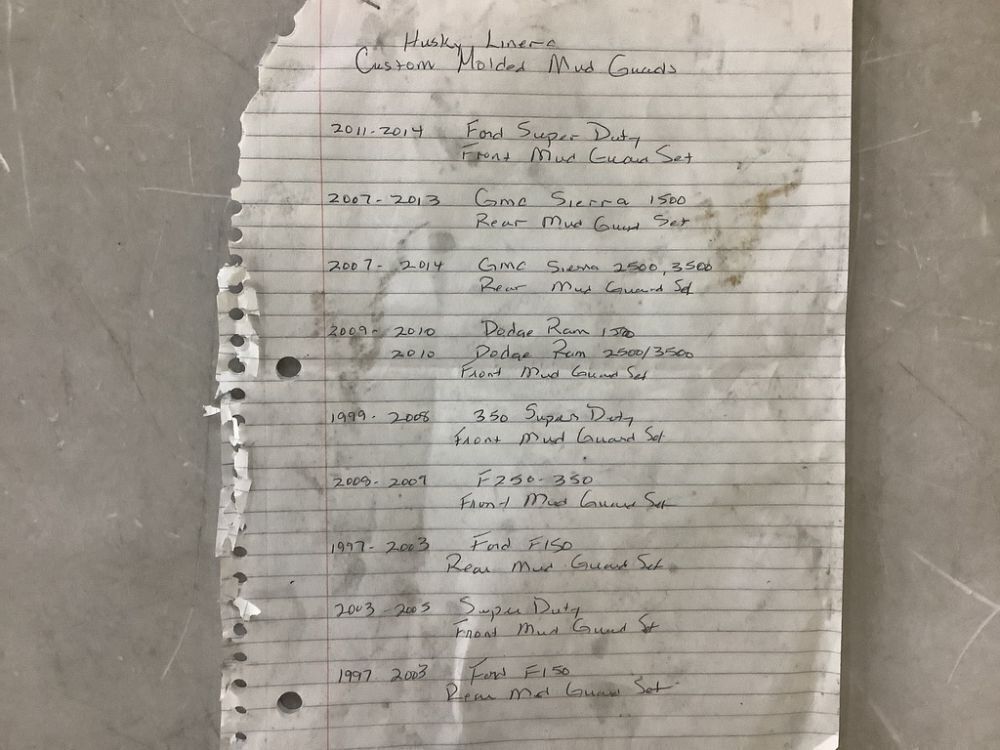 Husky Liners
Custom Molded Mud Guads
2011-2014 Ford Super Duty
Front Mud Guard Set
2007-2013 Gmc Sierra 1500
Rear Mud Guard Set
2007-2014 Gmc Sierra 2500, 3500
Rear Mud Guard Set
2009-2010 Dodge Ram 1500
2010 Dodge Ram 2500/3500
Front Mud Guard Set
1999-2008 350 Super Duty
Front Mud Guard Set
F250-350
Front Mud Guard Set
1997-2003 Ford F150
Rear Mud Guard Set
2003-2005 Super Duty
Front Mud Guard Set
1997 2003 Ford F150
Rear Mud Guard Set